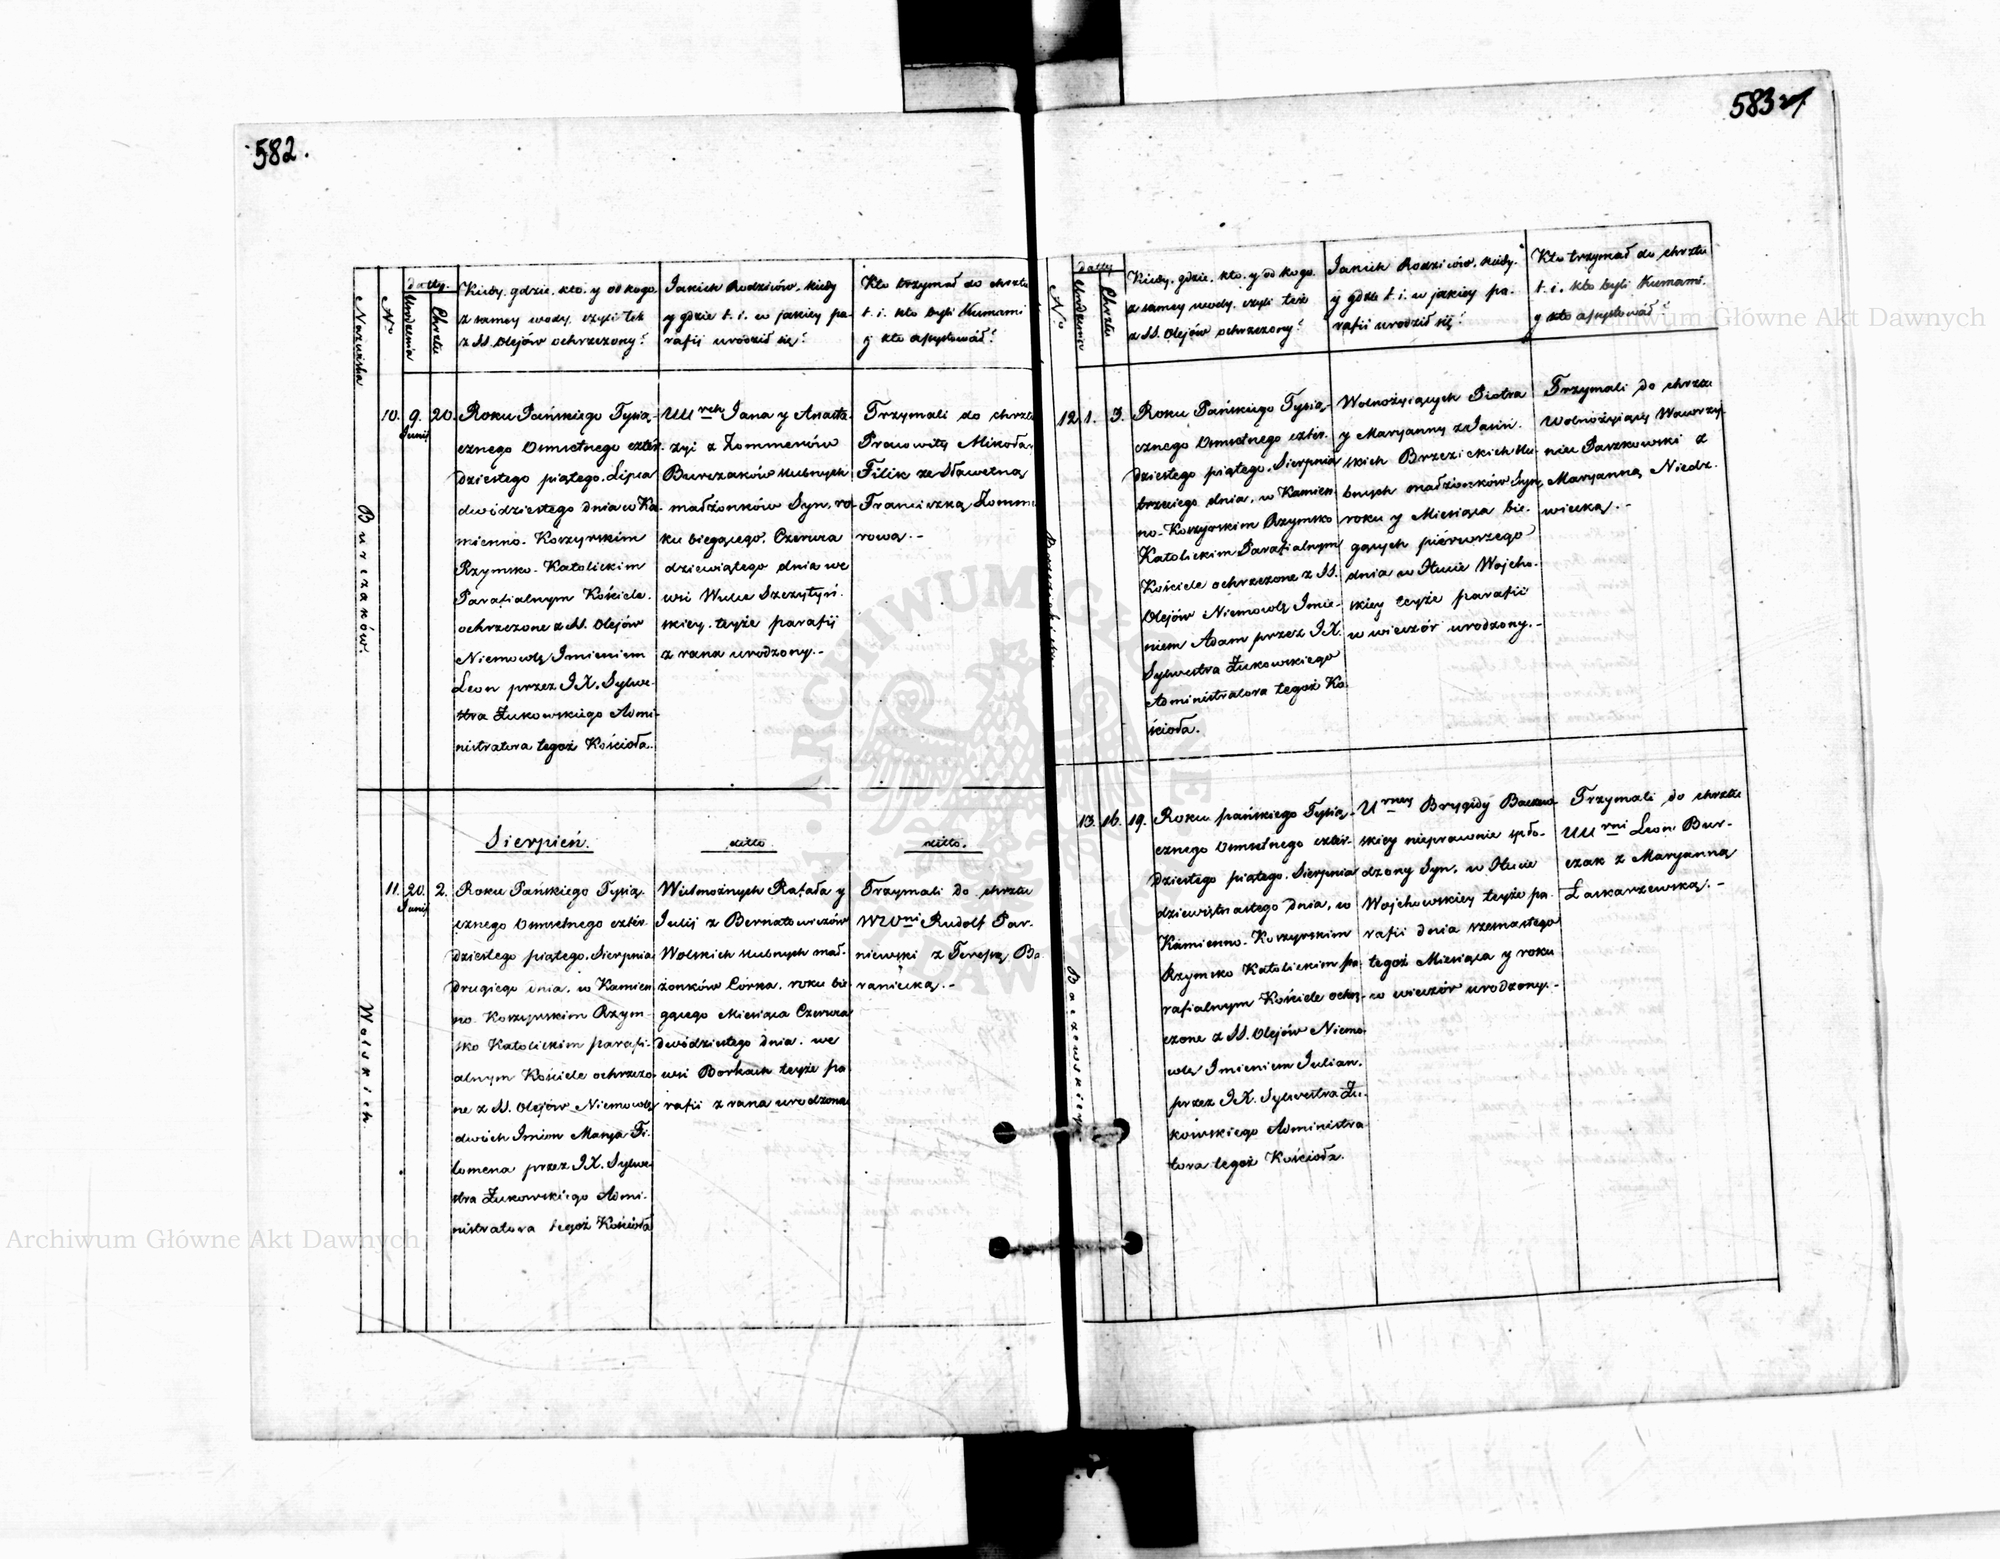 582.
583
Nazwiska
No
Datty.
Urodzenia
Chrztu
Kiedy, gdzie, kto, y od kogo
z samey wody, czyli też
z SS. Olejów ochrzczony?
Jakich Rodziców, kiedy
y gdzie t. i. w jakiey pa-
rafii urodził się?
Kto trzymał do chrztu
t. i. kto byli Kumami
y kto assystował?
Burczaków.
10.
9.
Junij
20.
Roku Pańskiego Tysią-
cznego Osmsetnego czter-
dziestego piątego, Lipca
dwódziestego dnia w Ka-
mienno-Koszyrskim
Rzymsko-Katolickim
Parafialnym Kościele.
ochrzczone z SS. Olejów
Niemowlę Imieniem
Leon przez JX. Sylwe-
stra Żukowskiego Admi-
nistratora tegoż Kościoła.
UUrch Jana y Anasta-
zyi z Zommerów
Burczaków slubnych
małżonków Syn, ro-
ku biegącego, Czerwca
dziewiątego dnia we
wsi Wulce Szczytyń-
skiey, teyże parafii
z rana urodzony.-
Trzymali do chrztu
Pracowity Mikołai
Filik ze Sławetną
Franciszką Zomme-
rową.-
Sierpień.
ditto.
ditto.
Wolskich
11.
20.
Junij
2.
Roku Pańskiego Tysią-
cznego Osmsetnego czter-
dziestego piątego, Sierpnia
drugiego dnia, w Kamien-
no-Koszyrskim Rzym-
sko Katolickim parafi-
alnym Kościele ochrzczo-
ne z SS. Olejów Niemowlę
dwóch Imion Marya Fi-
lomena przez JX. Sylwe-
stra Żukowskiego Admi-
nistratora tegoż Kościoła
Wielmożnych Rafała y
Julij z Bernatowiczów
Wolskich slubnych mał-
żonków Córka, roku bie-
gącego Miesiąca Czerwca
dwódziestego dnia, we
wsi Borkach teyże pa-
rafii z rana urodzona
Trzymali do chrztu
WWni Rudolf Par-
niewski z Teresą Ba-
raniecką.-
No
Datty
Urodzenia
Chrztu
Kiedy, gdzie, kto, y od kogo
z samey wody, czyli też
z SS. Olejów ochrzczony?
Jakich Rodziców, kiedy
y gdzie t. i. w jakiey pa-
rafii urodził się?
Kto trzymał do chrztu
t. i. kto byli Kumami
y kto assystował?
12.
1.
3.
Roku Pańskiego Tysią-
cznego Osmsetnego czter-
dziestego piątego, Sierpnia
trzeciego dnia, w Kamien-
no-Koszyrskim Rzymsko
Katolickim Parafialnym
Kościele ochrzczone z SS.
Olejów Niemowlę Imie-
niem Adam przez JX.
Sylwestra Żukowskiego
Administratora tegoż Ko-
ścioła.
Wolnożyiących Piotra
y Maryanny z Jasiń-
skich Brzezickich slu-
bnych małżonków Syn,
roku y Miesiąca bie-
gących pierwszego
dnia w Hucie Wojcho-
skiey teyże parafii
w wieczór urodzony.-
Trzymali do chrztu
Wolnożyiący Wawrzy-
niec Paszkowski z
Maryanną Niedz-
wiecką.-
Baczewskiey
13.
16.
19.
Roku pańskiego Tysią-
cznego Osmsetnego czter-
dziestego piątego, Sierpnia
dziewiętnastego dnia, w
Kamienno-Koszyrskim
Rzymsko Katolickim pa-
rafialnym Kościele ochrz-
czone z SS. Olejów Niemo-
wlę Imieniem Julian,
przez JX. Sylwestra Żu-
kowskiego Administra-
tora tegoż Kościoła.
Urney Brygidy Baczew-
skiey nieprawnie spło-
dzony Syn, w Hucie
Wojchowskiey teyże pa-
rafii dnia szesnastego
tegoż Miesiąca y roku
w wieczór urodzony.-
Trzymali do chrztu
UUrni Leon Bur-
czak z Maryanną
Laskarzewską.-
Archiwum Główne Akt Dawnych
Archiwum Główne Akt Dawnych